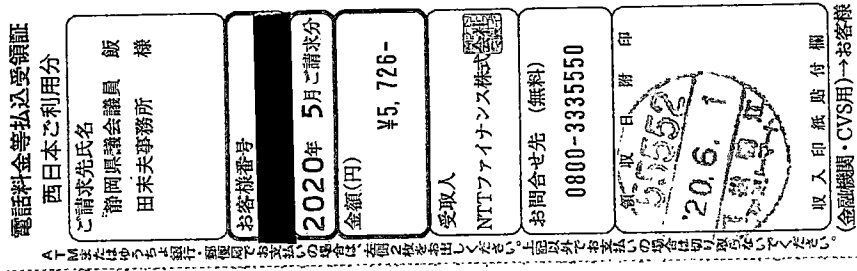 電話料金等払込受領証
西日本ご利用分
ご請求先氏名
静岡県議会議員 飯
田末夫事務所 様
お客様番号
2020年 5月ご請求分
金額(円)
¥5,726-
受取人
NTTファイナンス株式会社
お問合せ先 (無料)
0800-3335550
領収日附印
55552
'20.6.1
収入印紙貼付欄
(金融機関・CVS用)→お客様
ATMまたはゆうちょ銀行・郵便局でお支払いの場合は、左側2枚をお出しください。上記以外でお支払いの場合は切り取らないでください。